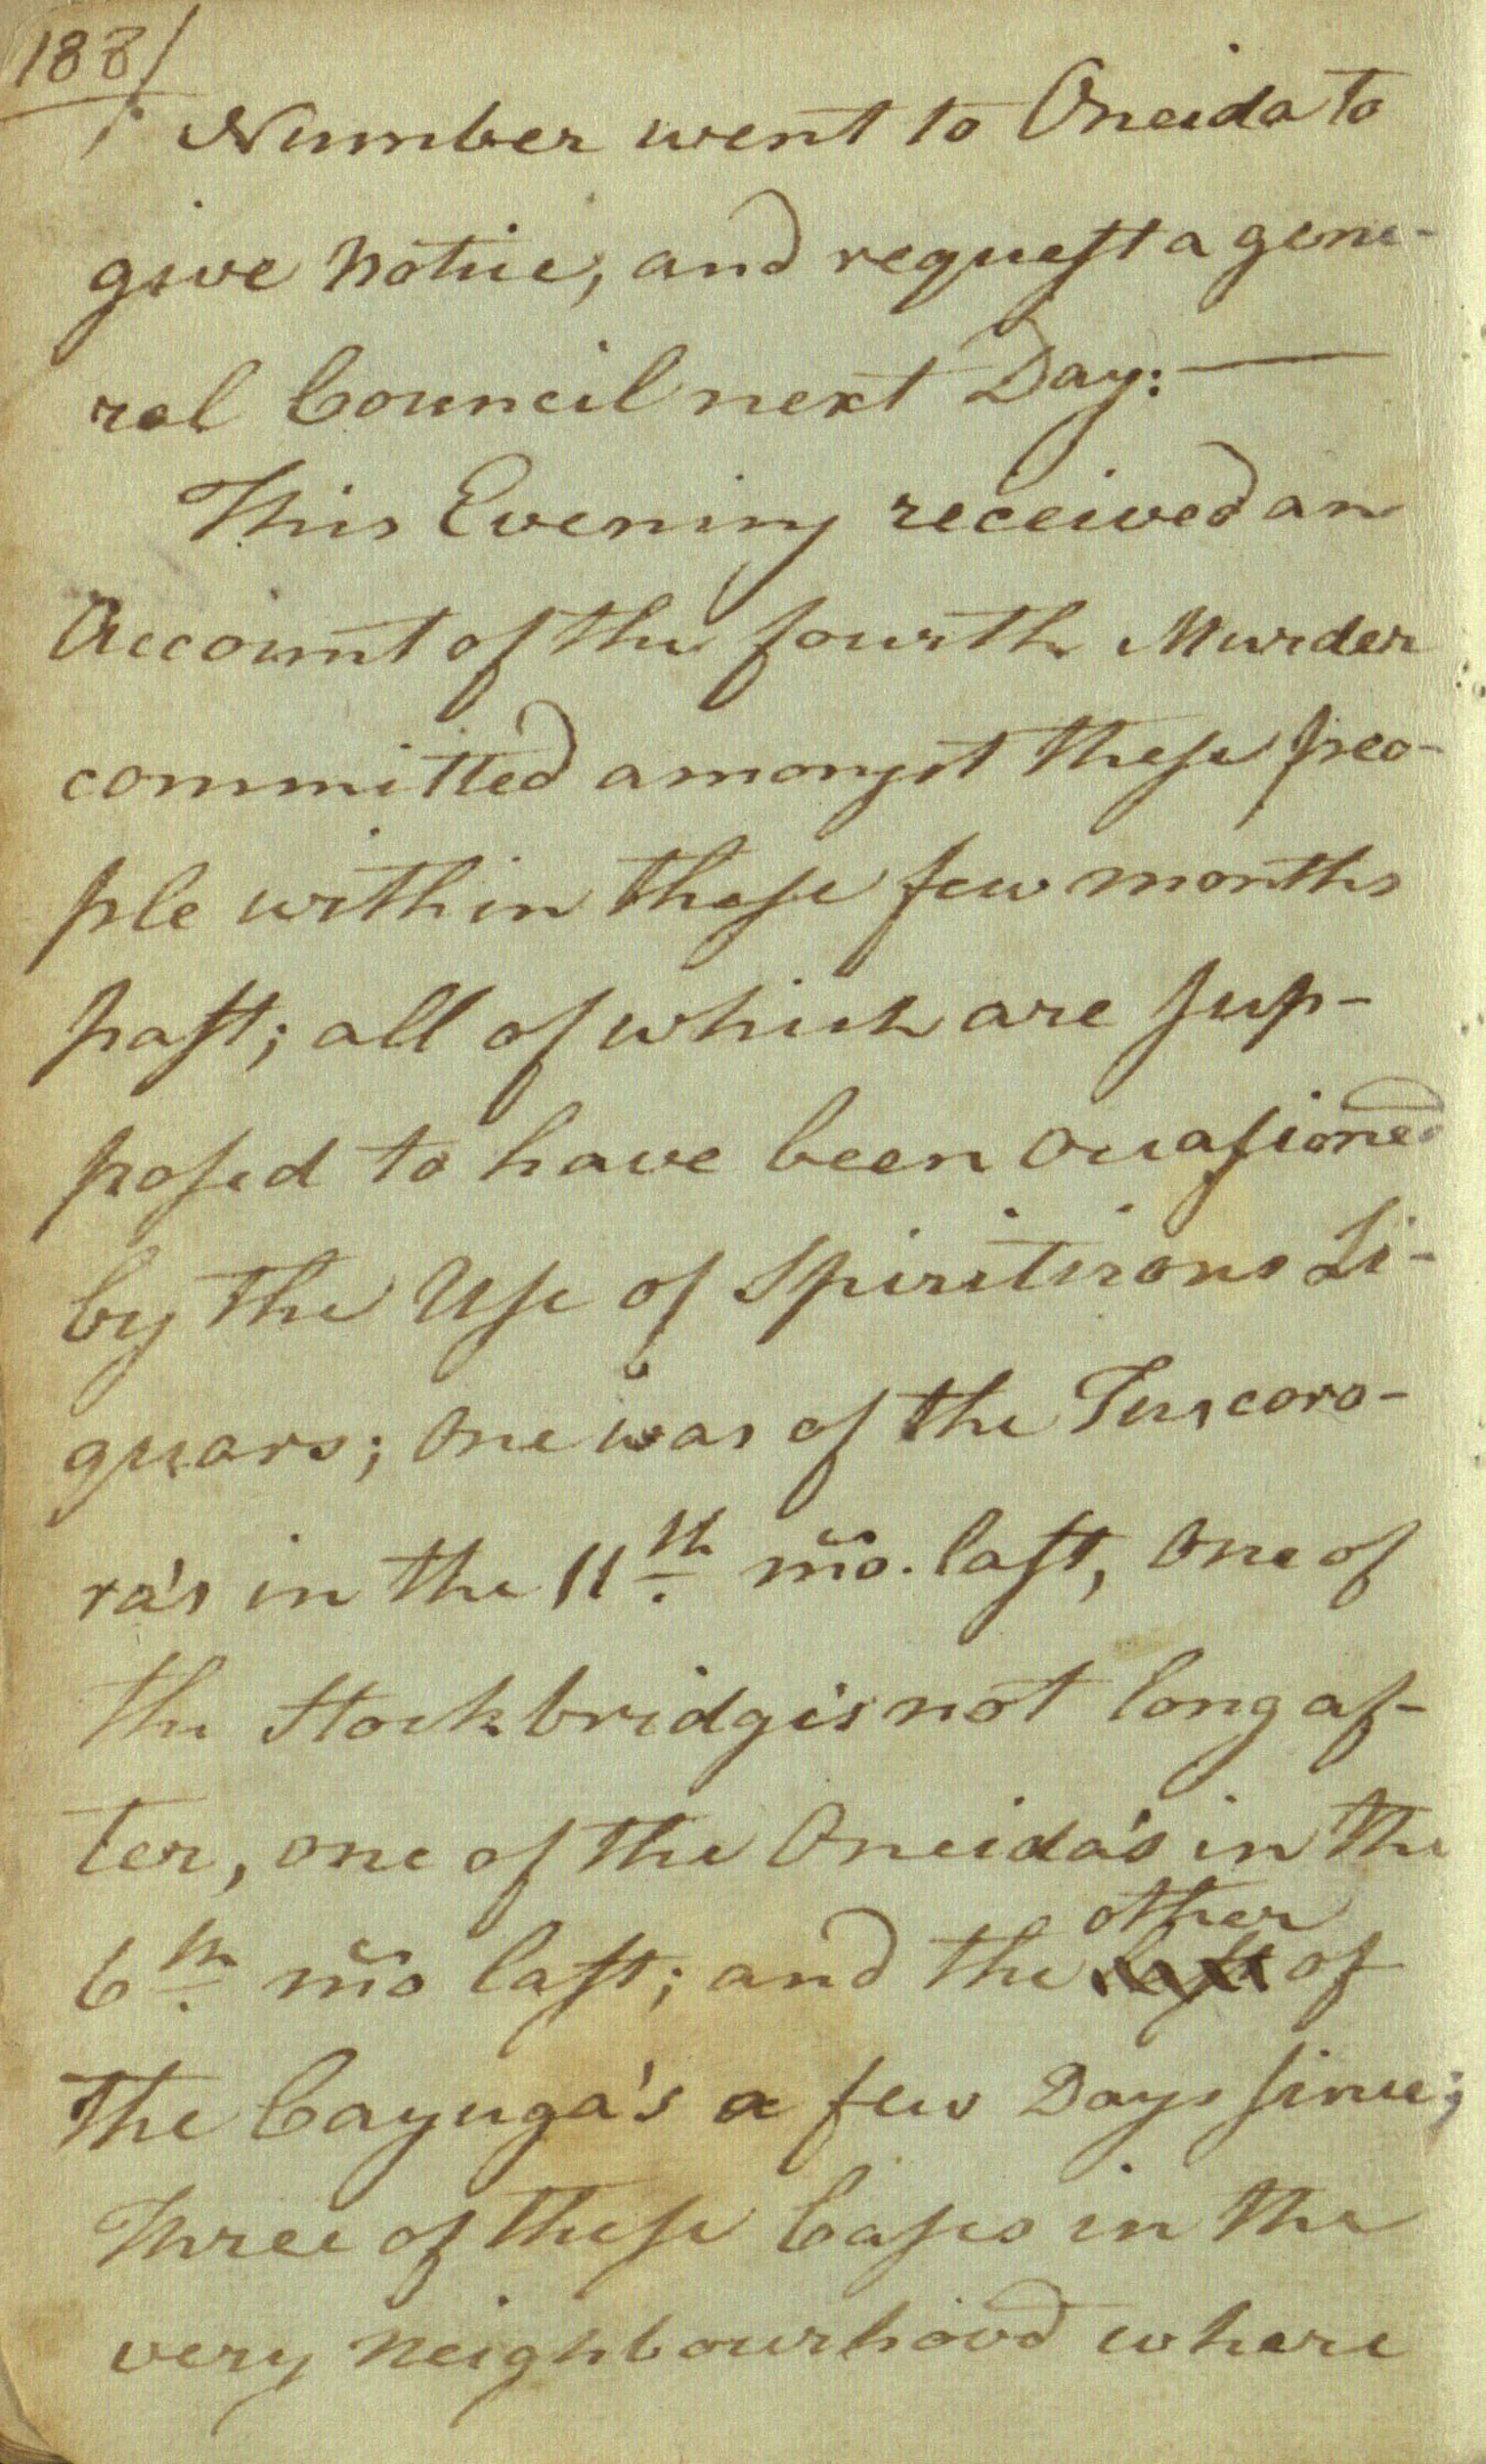 188/
Number went to Oneida to
give notice, and request a gene-
ral Council next Day:—
This Evening received an
Account of the fourth Murder
committed amongst these peo-
ple within these few months
past; all of which are sup-
posed to have been occasioned
by the Use of Spiritirons Li-
quars; One was of the Tuscoro-
ra's in the 11th mo. last, One of
the Stockbridgis not long af-
ter, one of the Oneida's in the
other
6th mo last; and the last of
the Cayuga's a few Days since;
Three of these Cases in the
very neighbourhood where